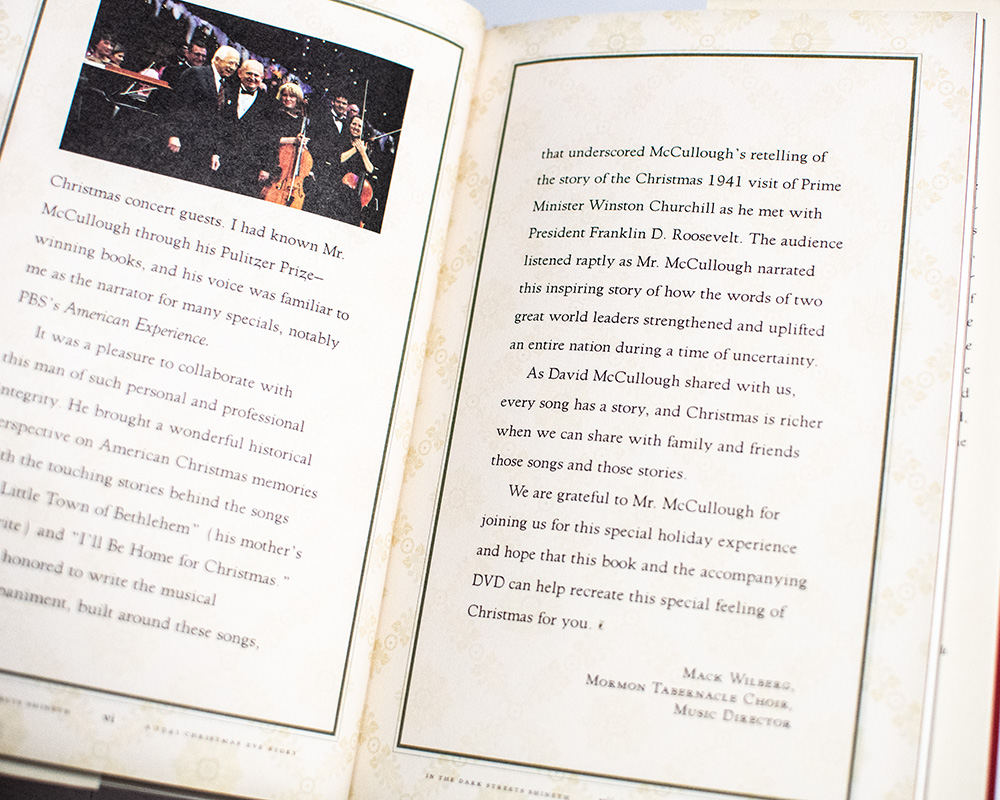 Christmas concert guests. I had known Mr.
McCullough through his Pulitzer Prize–
winning books, and his voice was familiar to
me as the narrator for many specials, notably
PBS's American Experience.
It was a pleasure to collaborate with
this man of such personal and professional
integrity. He brought a wonderful historical
perspective on American Christmas memories
the touching stories behind the songs
Little Town of Bethlehem" (his mother's
and "I'll Be Home for Christmas."
honored to write the musical
built around these songs,
vi
A 1941 CHRISTMAS EVE STORY
that underscored McCullough's retelling of
the story of the Christmas 1941 visit of Prime
Minister Winston Churchill as he met with
President Franklin D. Roosevelt. The audience
listened raptly as Mr. McCullough narrated
this inspiring story of how the words of two
great world leaders strengthened and uplifted
an entire nation during a time of uncertainty.
As David McCullough shared with us,
every song has a story, and Christmas is richer
when we can share with family and friends
those songs and those stories.
We are grateful to Mr. McCullough for
joining us for this special holiday experience
and hope that this book and the accompanying
DVD can help recreate this special feeling of
Christmas for you.
Mack Wilberg,
Mormon Tabernacle Choir,
Music Director
IN THE DARK STREETS SHINETH